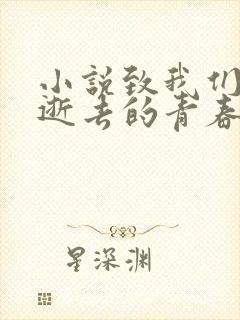 小説致我们
逝去的青春
星深渊